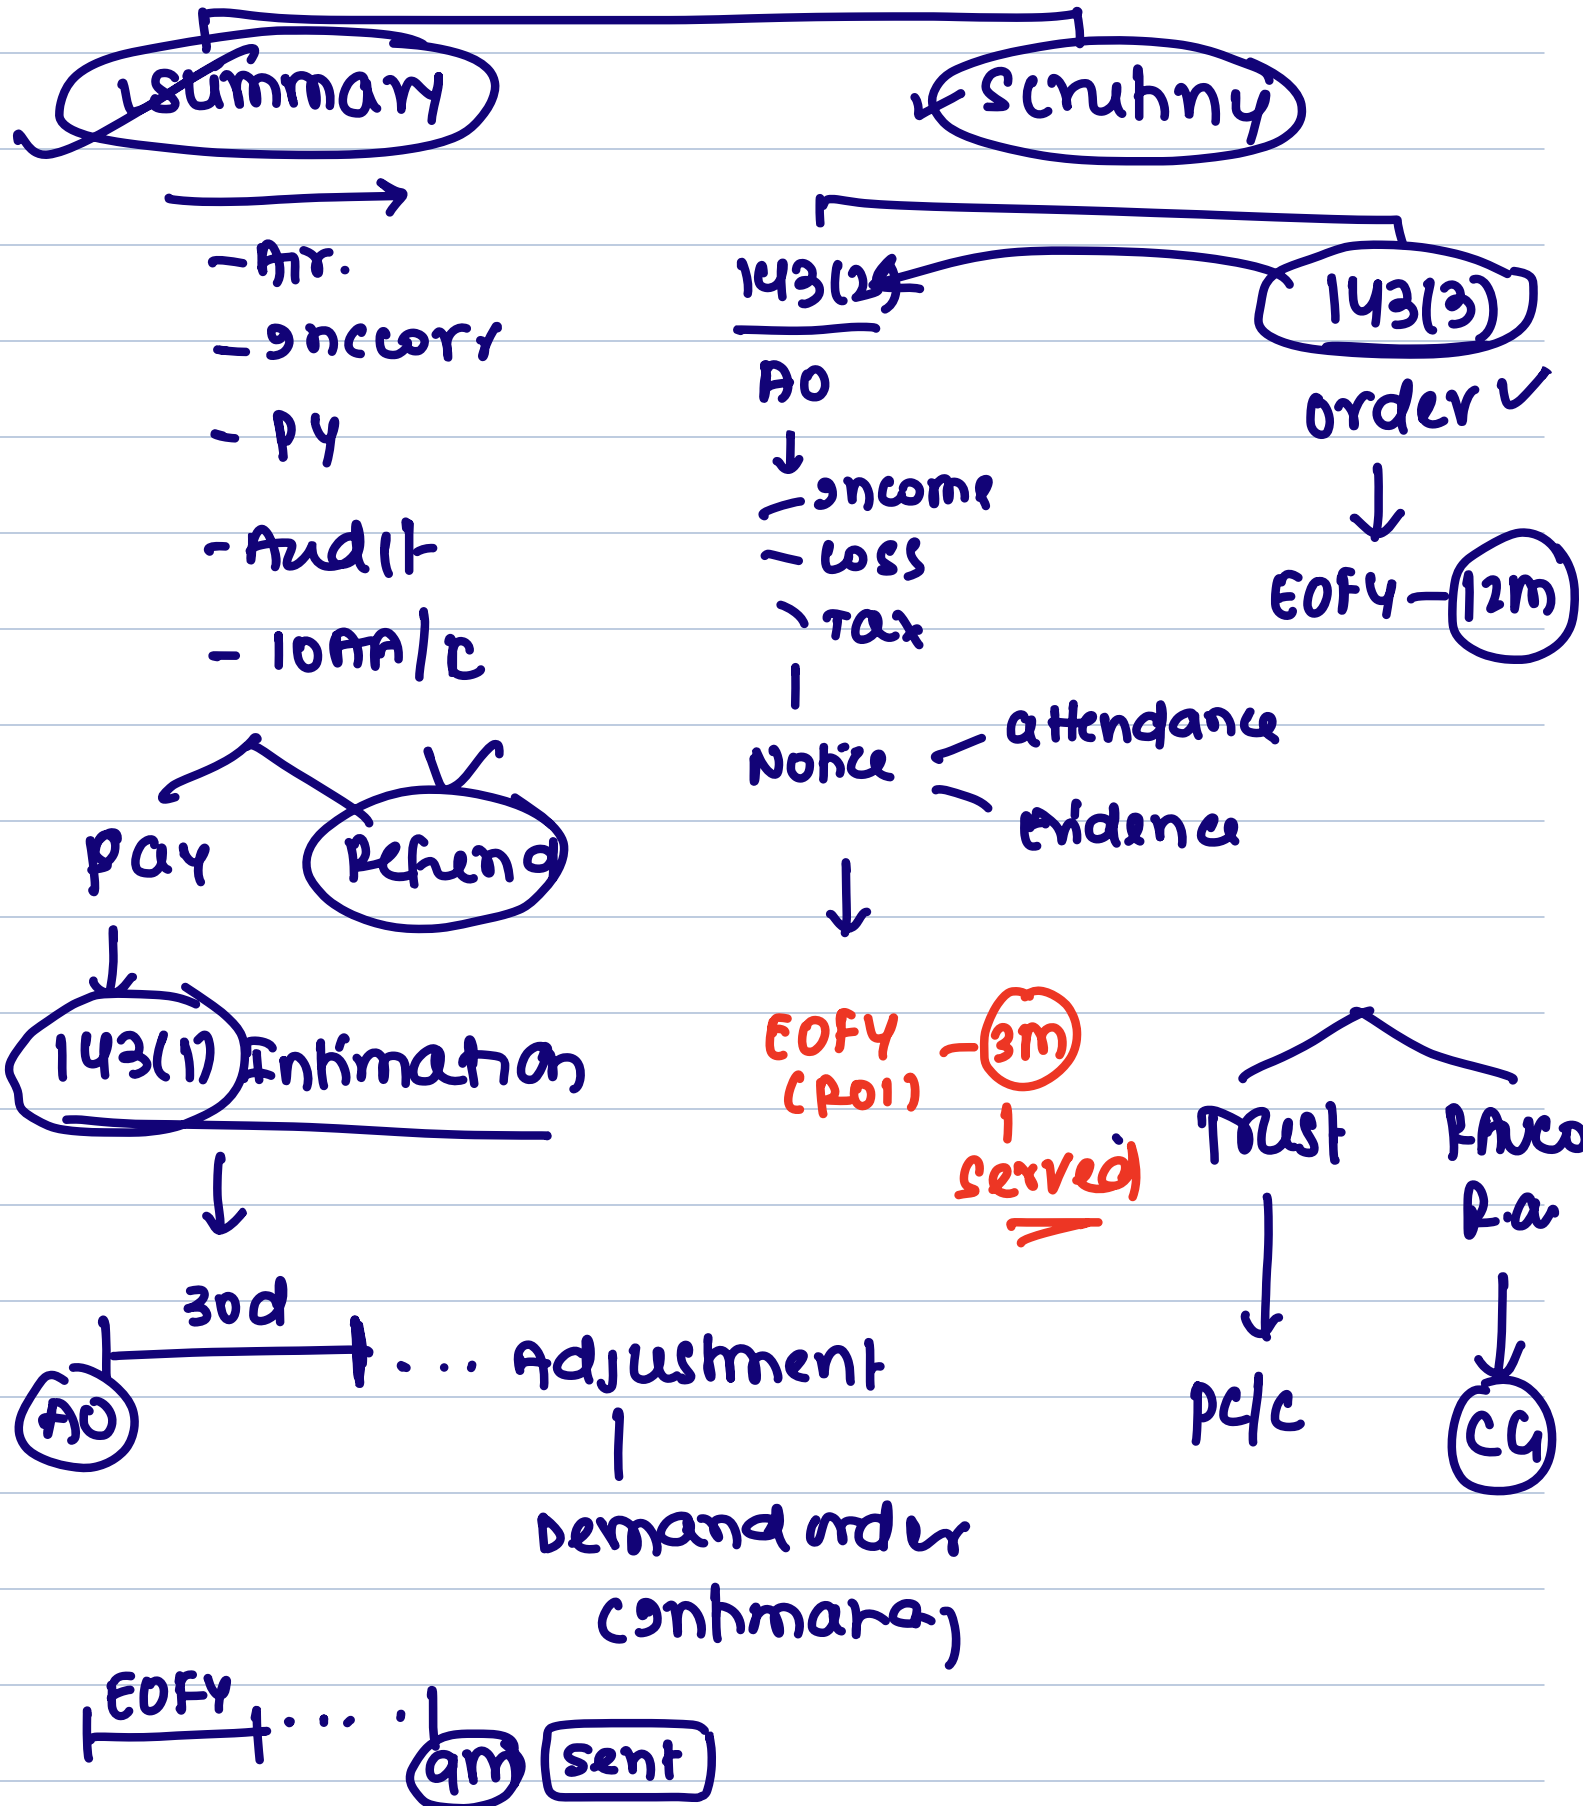 Summary
Scrutiny
- Air.
- Inccorr
- PY
- Audit
- 10AA/C
Pay
Refund
143(1) Intimation
30d
AO
.... Adjustment
Demand order
(Intimation)
EOFY
....
9m
sent
143(2)
AO
- Income
- Loss
- Tax
Notice
attendance
Evidence
EOFY
(ROI)
- 3m
Served
143(3)
order
EOFY - 12m
Trust
PC/C
R.a
CG